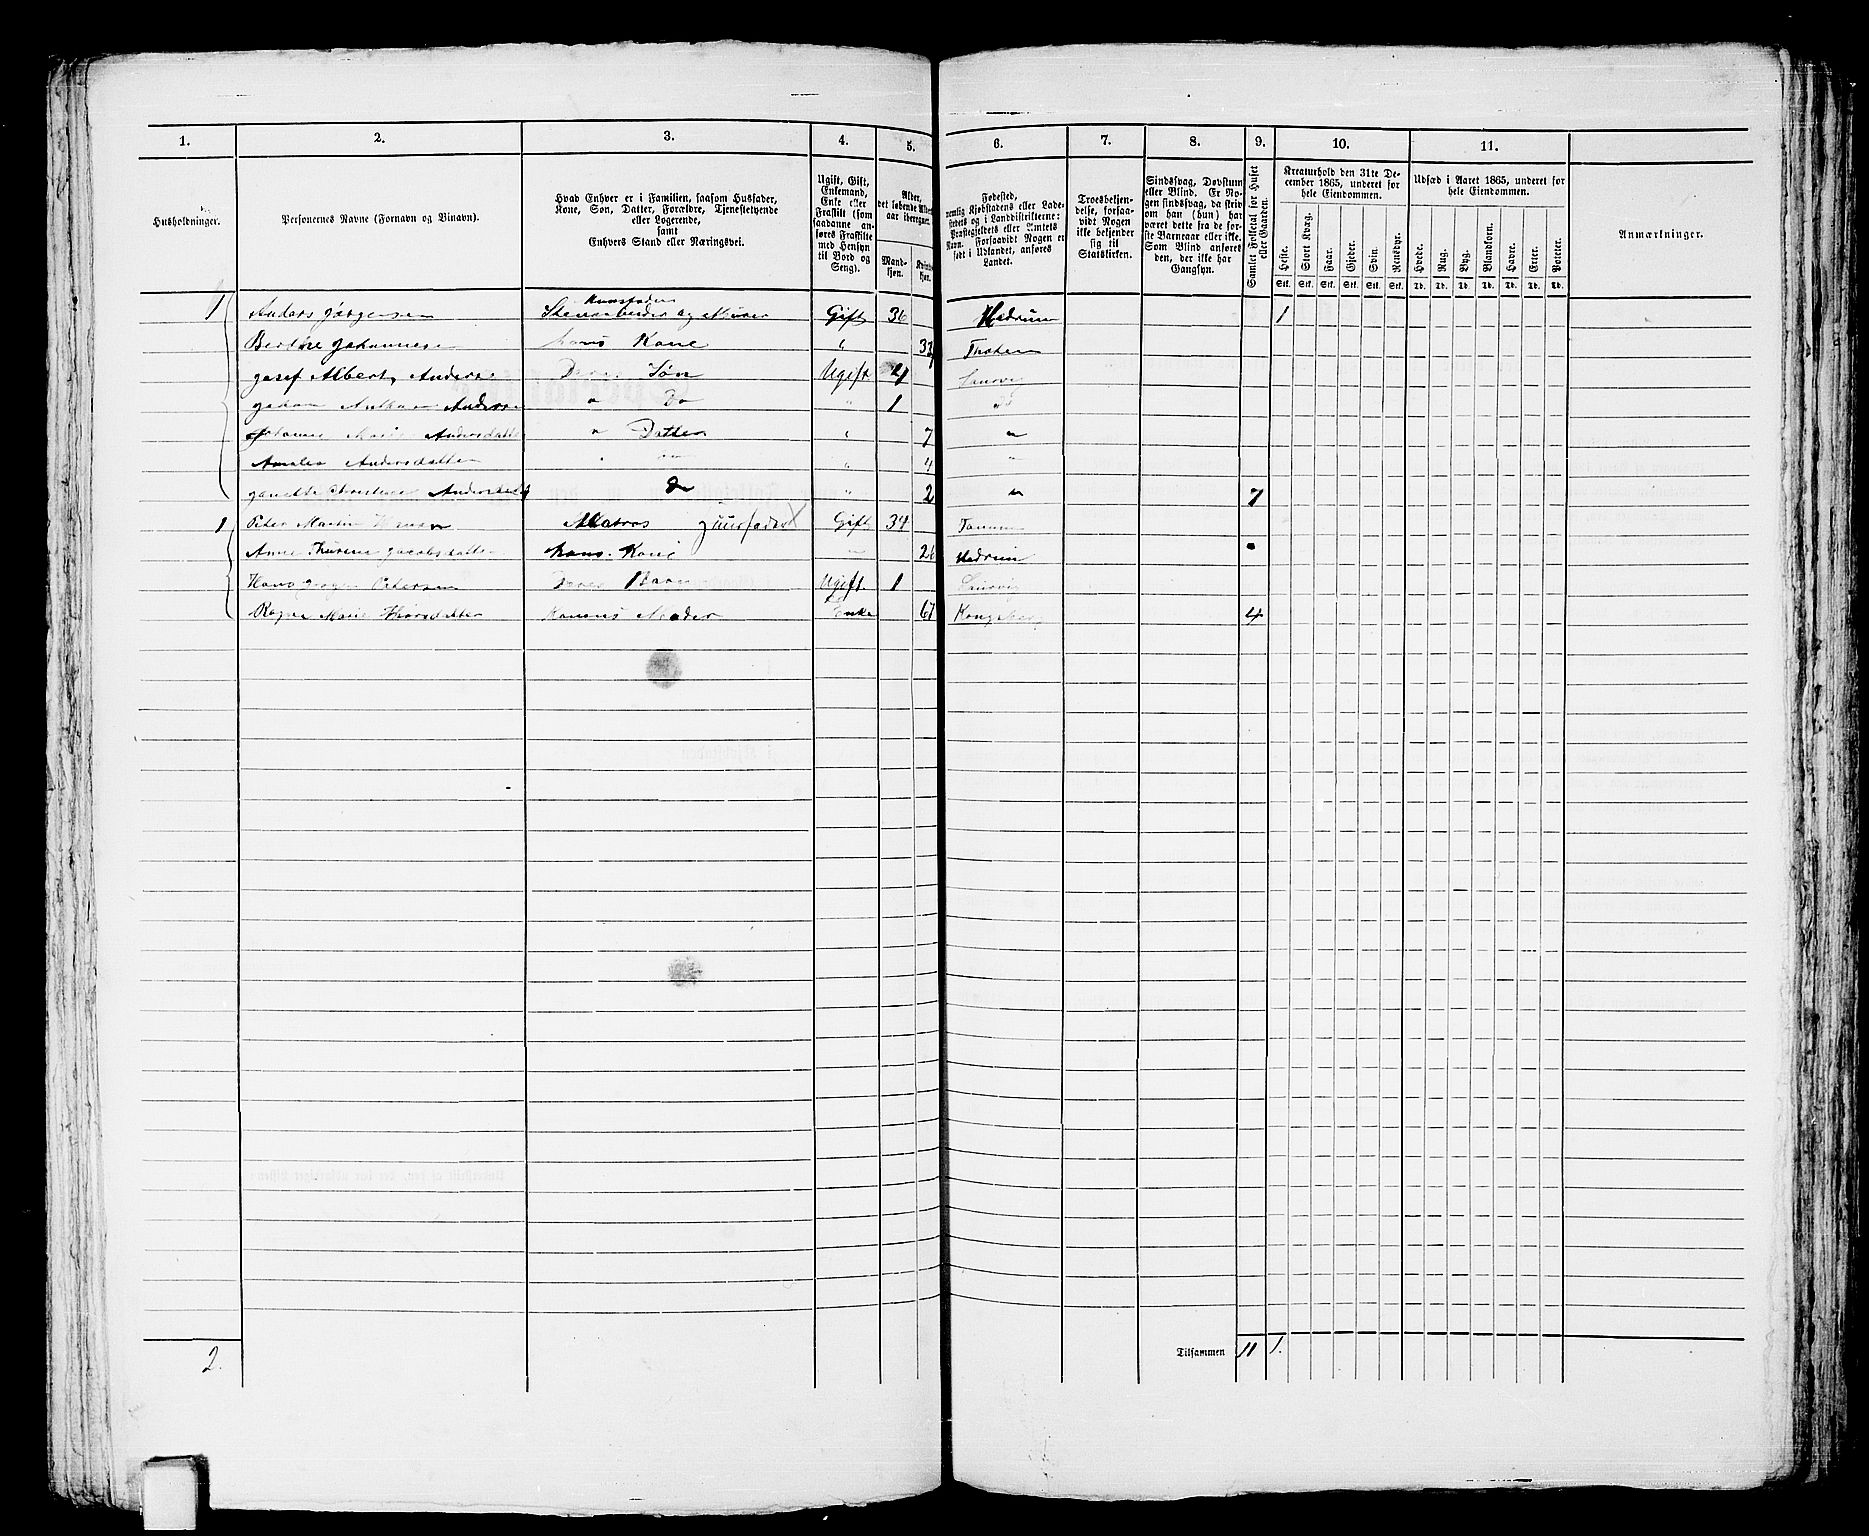 1. 2. 3. 4. 5. 6. 7. 8. 9. 10. 11.
Husholdninger.
Personernes Navne (Fornavn og Binavn).
Hvad Enhver er i Familien, saasom Husfader,
Kone, Søn, Datter, Forældre, Tjenestetyende
eller Logerende,
samt
Enhvers Stand eller Næringsvei.
Ugift, Gift,
Enkemand,
Enke eller
Fraskilt (som
saadanne an-
føres Fraskilte
med Hensyn
til Bord og
Seng).
Alder,
det løbende Alders-
aar iberegnet.
Mand-
kjøn.
Kvinde-
kjøn.
Fødested,
nemlig Kjøbstadens eller Lade-
stedets og i Landdistrikterne:
Præstegjeldets eller Amtets
Navn. Forsaavidt Nogen er
født i Udlandet, anføres
Landet.
Troesbekjen-
delse, forsaa-
vidt Nogen
ikke bekjender
sig til
Statskirken.
Sindssvag, Døvstum
eller Blind. Er No-
gen sindssvag, da skriv
om han (hun) har
været dette fra de før-
ste Barneaar eller ikke.
Som Blind anføres
den, der ikke har
Gangsyn.
Samlet Folketal for Huset
eller Gaarden.
Kreaturhold den 31te De-
cember 1865, underet for
hele Eiendommen.
Heste. Stort Kvæg. Faar. Gjeder. Svin. Rensdyr.
Stk. Stk. Stk. Stk. Stk. Stk.
Udsæd i Aaret 1865, underet for
hele Eiendommen.
Hvede. Rug. Byg. Blandkorn. Havre. Erter. Poteter.
Td. Td. Td. Td. Td. Td. Td.
Anmærkninger.
Huusfader
1 Anders Jørgensen Steenarbeider og Murer Gift 36 Hedrum 1
Berthe Johannesen hans Kone " 33 Thoten
Josef Albert Anderse Deres Søn Ugift 4 Laurvig
Johan Anderse " Do " 1 "
Johanne Marie Andersdatter " Datter " 7 "
Amalia Andersdatter " " " 4 "
Christine Andersdatt Do " 2 " 7
1 Peter Martin Hansen Matros Huusfader X Gift 34
Anne Thurine Jacobsdatter hans Kone " 26 Hedrum
Hans Jørgen Petersen Deres Barn Ugift 1 Laurvig
Marie Konens Moder Enke 67 Kongsberg 4
2. Tilsammen 11 1.